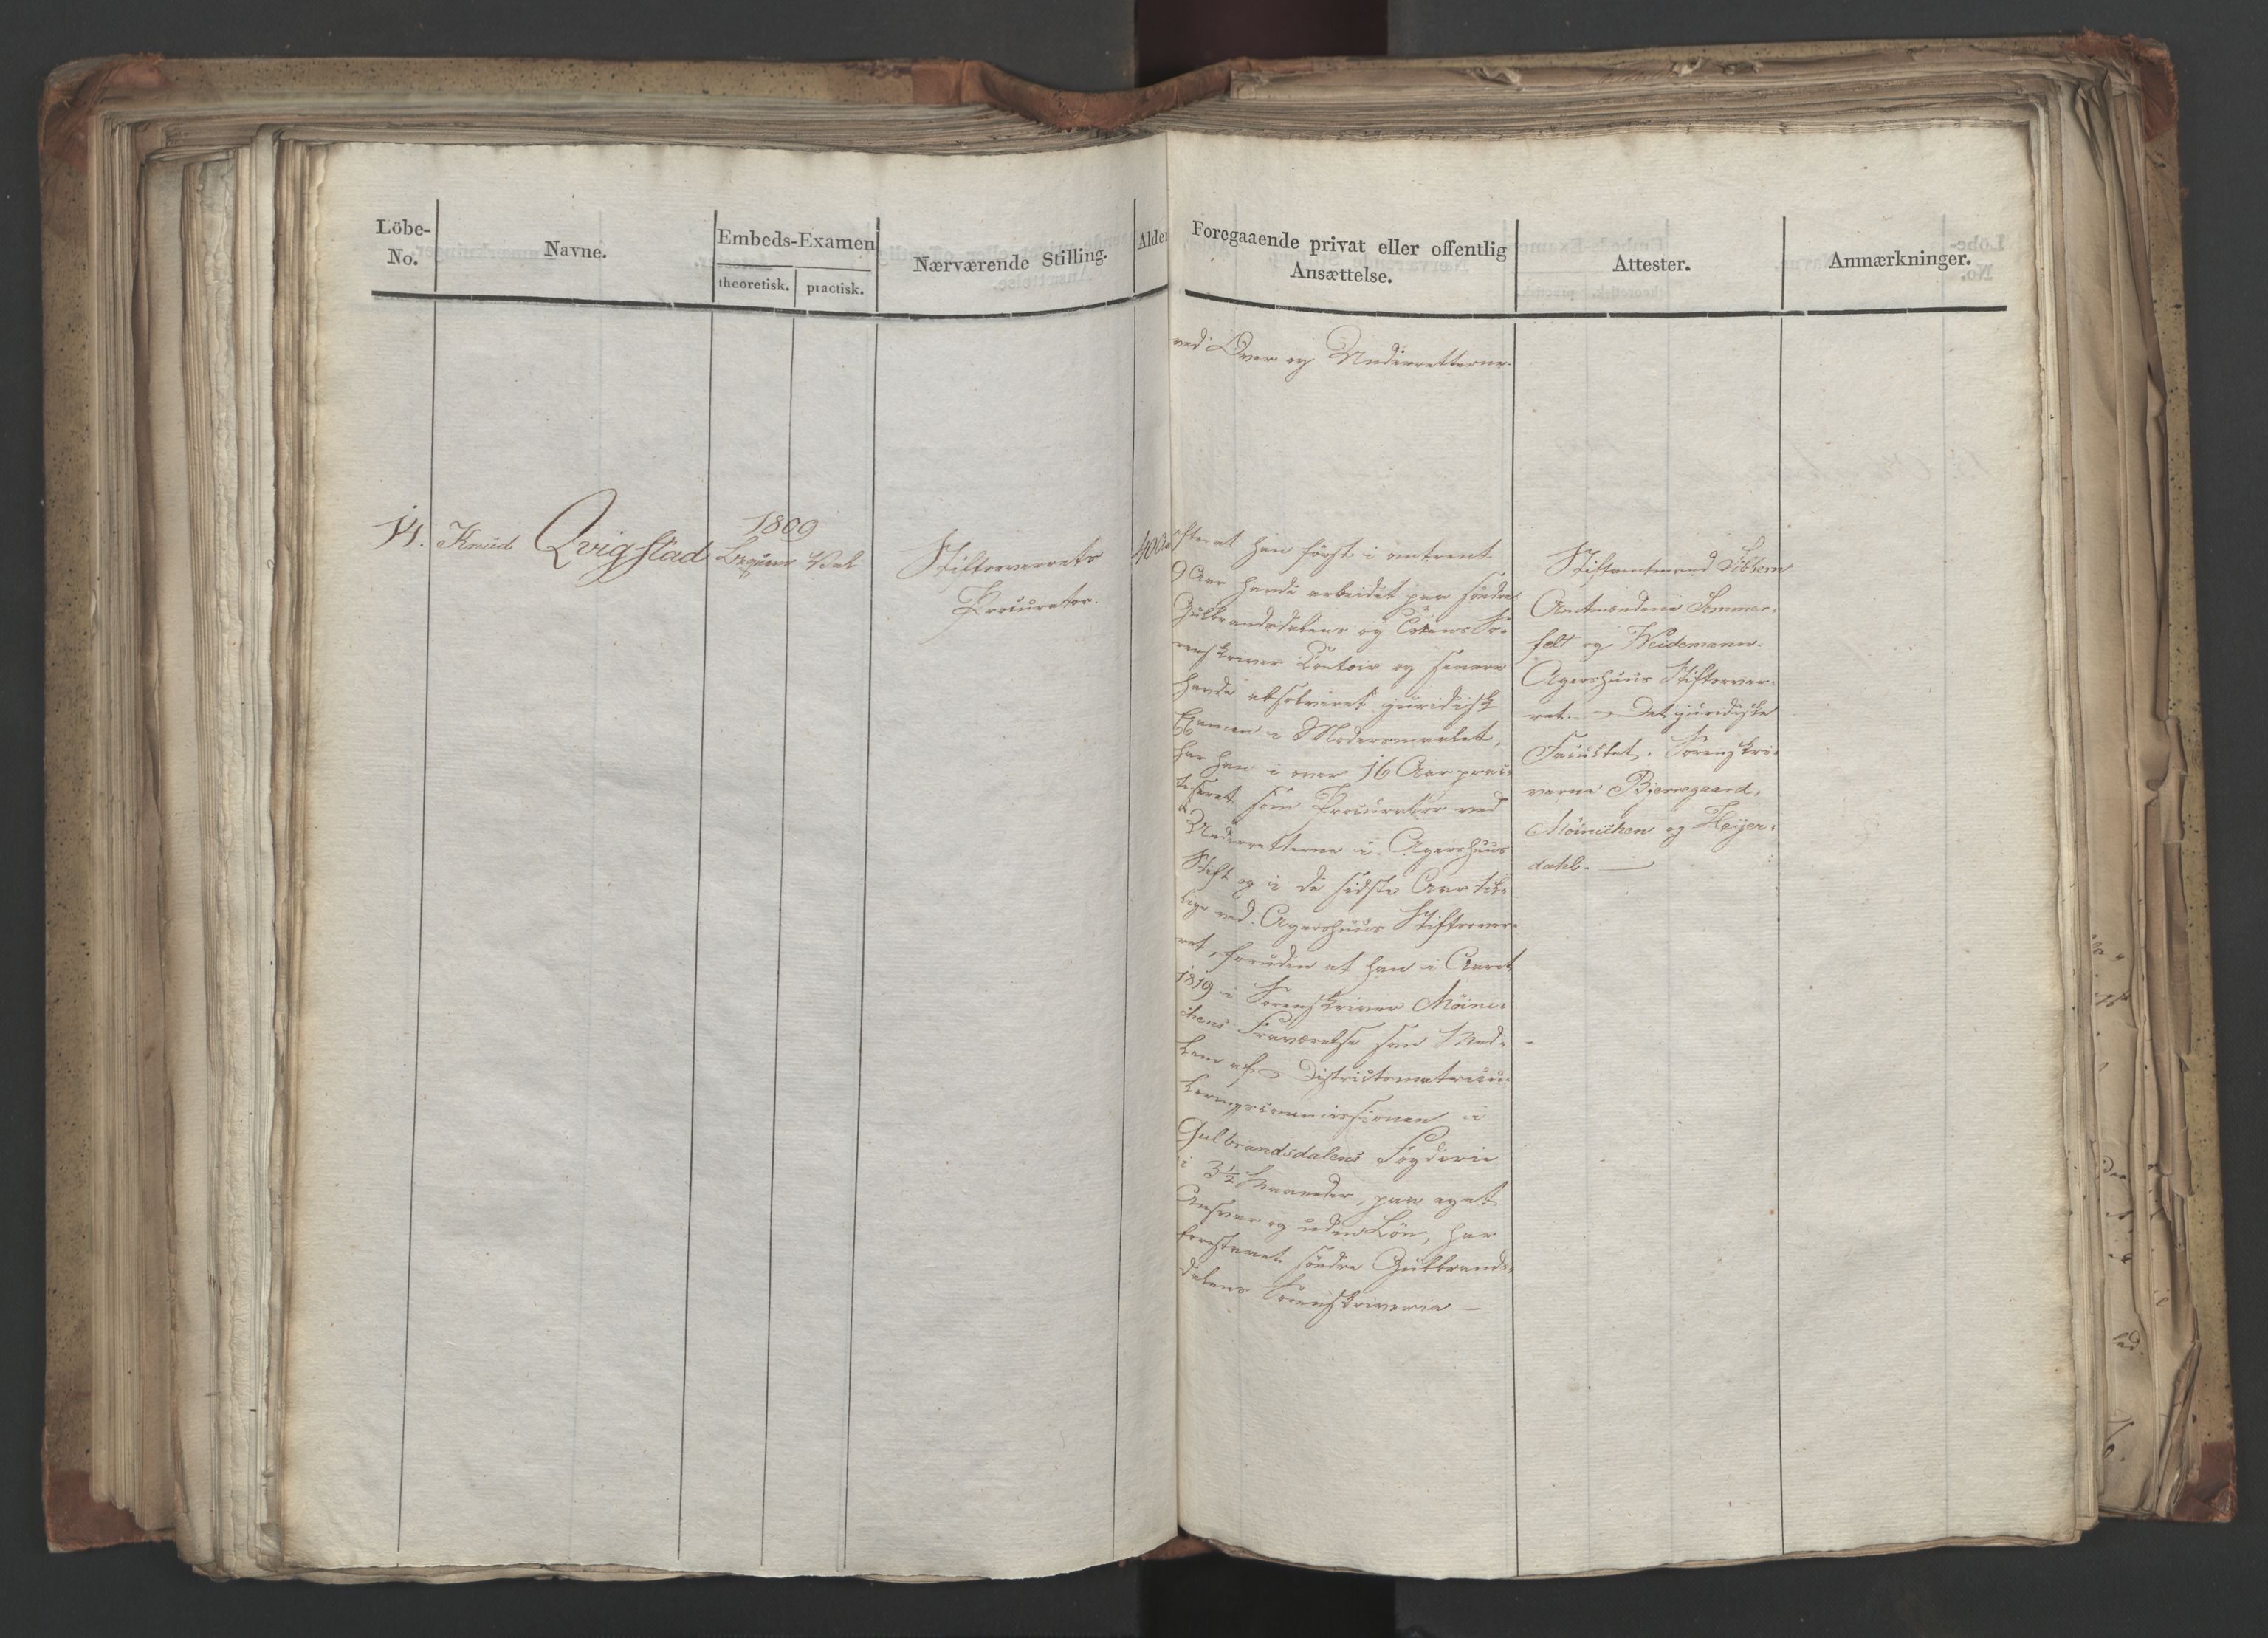 Löbe-
No.
Navne.
Embeds-Examen
theoretisk. practisk.
Nærværende Stilling.
Alder
Foregaaende privat eller offentlig
Ansættelse.
Attester.
Anmærkninger.
ved Over og Underretterne.
14. Knud Qvigstad
1809
Beqvem Vel
Stiftsoverrets
Procurator.
40
Efterat han først i omtrent
9 Aar havde arbeidet paa søndre
Gulbrandsdalens og So-
renskriver Contoir og senere
havde absolveret juridisk
Examen i Modersmaalet,
har han i over 16 Aar prac-
tiseret som Procurator ved
Underretterne i Agershuus
Stift og i de sidste Aar til-
lige ved Agershuus Stiftsover-
ret, foruden at han i Aaret
1819 i Sorenskriver Möini-
chens Fraværelse som Med-
lem af Districtsmatricu-
leringscommissionen i
Gulbrandsdalens Fogderie
i 3½ Maaneder, paa eget
Ansvar og uden Lön, har
forestaaet söndre Gulbrands-
dalens Sorenskriverie —
Stiftamtmand Sibbern
Amtmændene Sommer-
felt og Weidemann.
Agershuus Stiftsover-
ret. – Det juridiske
Facultet. Sorenskri-
verne Bjerregaard,
Möinichen og Heyer-
dahl. —